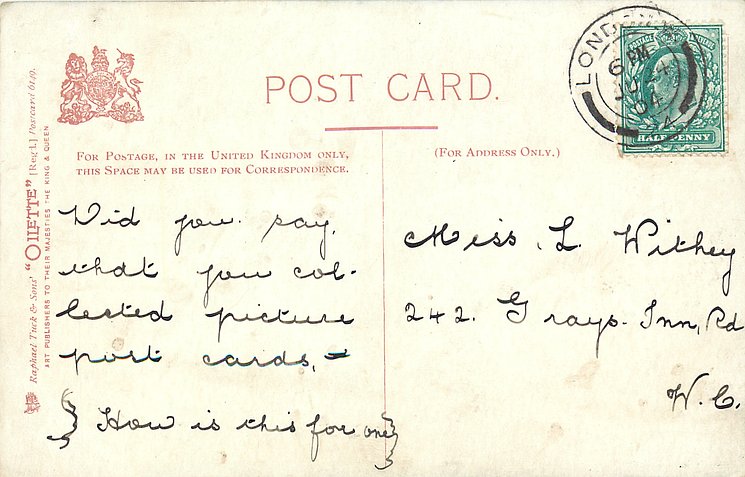 POST CARD.
FOR POSTAGE, IN THE UNITED KINGDOM ONLY,
THIS SPACE MAY BE USED FOR CORRESPONDENCE.
(FOR ADDRESS ONLY.)
Raphael Tuck & Sons' "OILETTE" [Regd.] Postcard 6149.
ART PUBLISHERS TO THEIR MAJESTIES THE KING & QUEEN
Did you say,
that you col-
lected picture
post cards,-
{ How is this for one }
Miss. L. Withey
242. Grays. Inn, Rd
W.C.
LONDON
6 PM
04
HALFPENNY